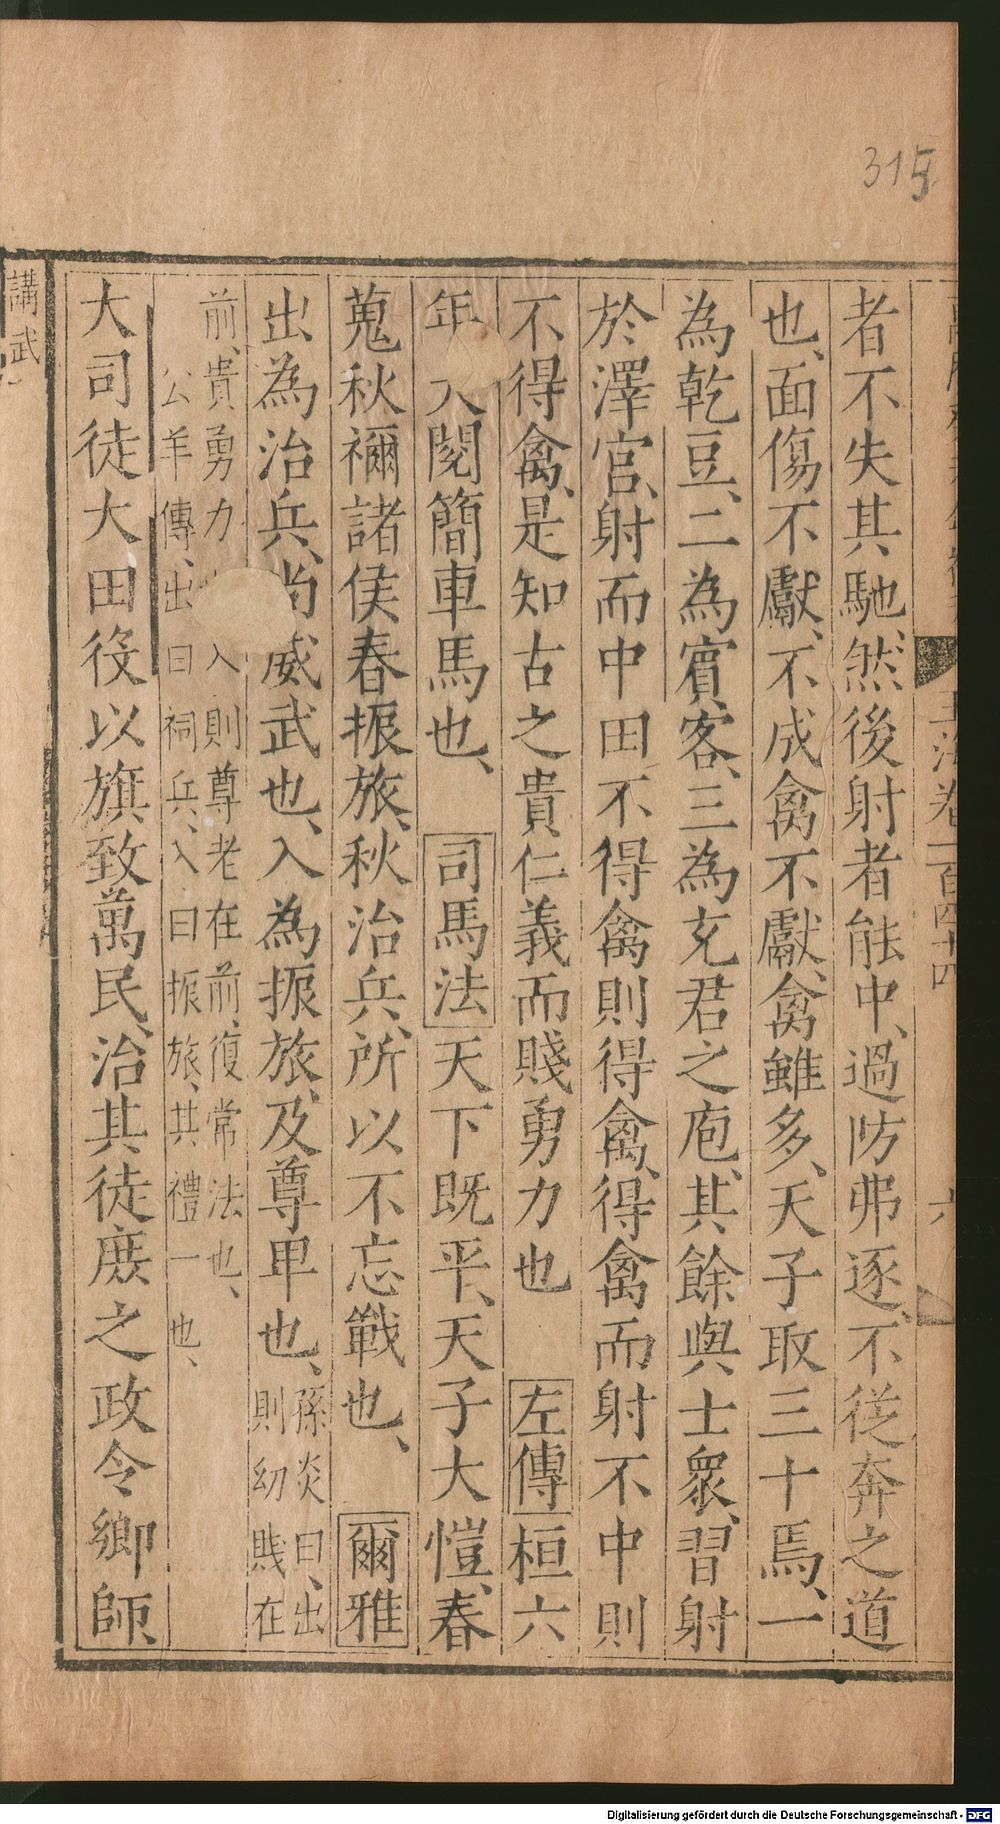 315
玉海卷一百四十四
六
者不失其馳、然後射者能中、過防弗逐、不從奔之道
也、面傷不獻、不成禽不獻、禽雖多、天子取三十焉、一
為乾豆、二為賓客、三為充君之庖、其餘與士衆、習射
於澤宮、射而中田不得禽則得禽、得禽而射不中則
不得禽、是知古之貴仁義而賤勇力也 左傳桓六
年大閱簡車馬也、 司馬法天下既平、天子大愷、春
蒐秋獮諸侯春振旅、秋治兵、所以不忘戰也、 爾雅
出為治兵、尚威武也、入為振旅、及尊卑也、孫炎曰、出
則幼賤在
前、貴勇力 入則尊老在前、復常法也、
公羊傳、出曰祠兵、入曰振旅、其禮一也、
大司徒大田役以旗致萬民、治其徒庶之政令鄉師、
講武
Digitalisierung gefördert durch die Deutsche Forschungsgemeinschaft - DFG